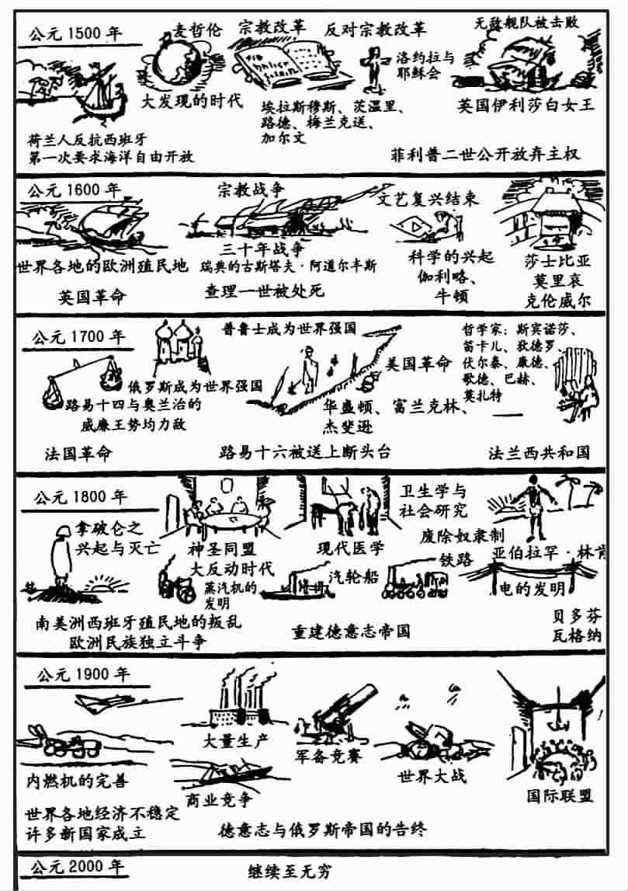 公元 1500 年
麦哲伦
宗教改革
反对宗教改革
无敌舰队被击败
洛约拉与
耶稣会
大发现的时代
埃拉斯穆斯、茨温里、
路德、梅兰克送、
加尔文
英国伊利莎白女王
荷兰人反抗西班牙
第一次要求海洋自由开放
菲利普二世公开放弃主权
公元 1600 年
宗教战争
文艺复兴结束
三十年战争
世界各地的欧洲殖民地
瑞典的古斯塔夫·阿道尔丰斯
科学的兴起
伽利略、
牛顿
莎士比亚
莫里哀
克伦威尔
英国革命
查理一世被处死
公元 1700 年
普鲁士成为世界强国
哲学家：斯宾诺莎、
笛卡儿、狄德罗、
伏尔泰、康德、
歌德、巴赫、
莫扎特
美国革命
俄罗斯成为世界强国
路易十四与奥兰治的
威廉王势均力敌
华盛顿、富兰克林、
杰斐逊
法国革命
路易十六被送上断头台
法兰西共和国
公元 1800 年
卫生学与
社会研究
拿破仑之
兴起与灭亡
神圣同盟
现代医学
废除奴隶制
大反动时代
亚伯拉罕·林肯
蒸汽机的
发明
汽轮船
铁路
电的发明
南美洲西班牙殖民地的叛乱
欧洲民族独立斗争
重建德意志帝国
贝多芬
瓦格纳
公元 1900 年
大量生产
军备竞赛
世界大战
内燃机的完善
商业竞争
国际联盟
世界各地经济不稳定
许多新国家成立
德意志与俄罗斯帝国的告终
公元 2000 年
继续至无穷